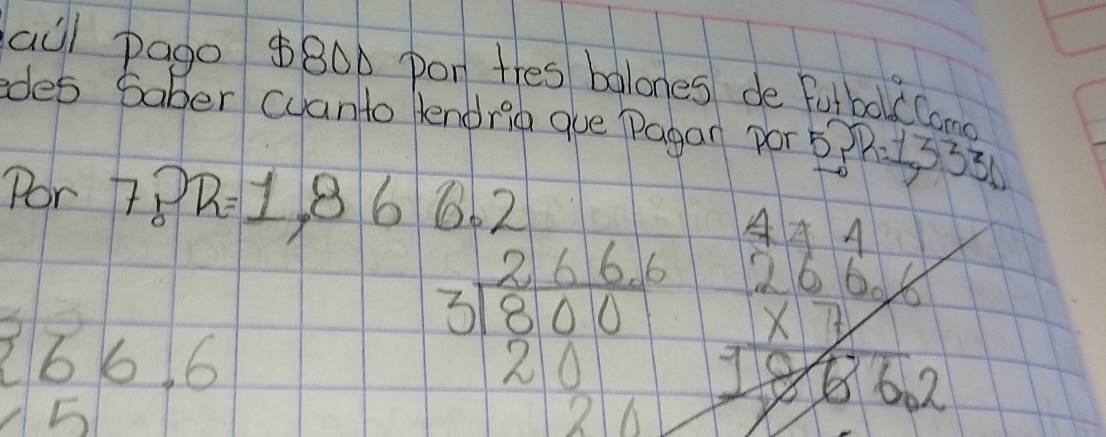 aúl pago $800 por tres balones de Futbol ¿Como
edes Saber cuanto tendria que Pagar por 5? R=1,333.0
Por 7? R=1,866.2
4 4 4
266.6 266.6
3 800 x 7
266.6 20 1866.2
5 20